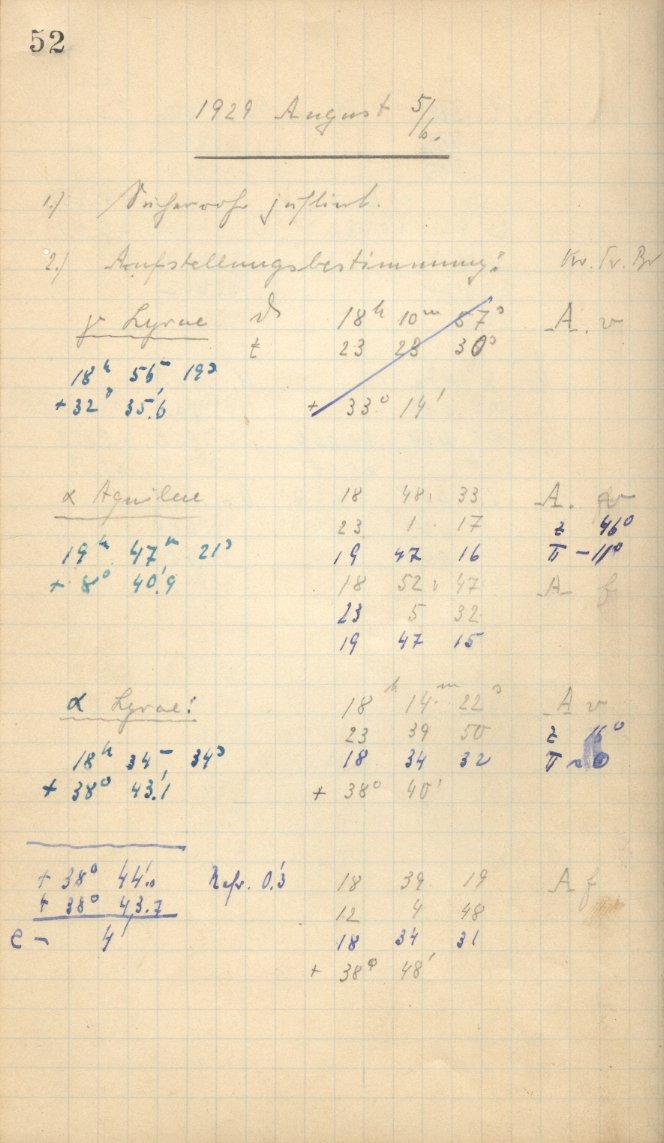 52
1929 August 5/6.
1.) Sucherrohr justiert.
2.) Aufstellungsbestimmung: Kr. Tr. Br
γ Lyrae ϑ 18h 10m 57s A. v
t 23 28 30s
18h 56m 19s
+ 32° 35.'6 + 33° 14'
α Aquilae 18 48 33 A. v
23 1 17 z 46°
19h 47m 21s 19 47 16 π -11°
+ 8° 40.'9 18 52 47 A f
23 5 32
19 47 15
α Lyrae: 18h 14m 22s A v
23 39 50 z 16°
18h 34m 34s 18 34 32 π ~ 0
+ 38° 43.'1 + 38° 40'
+ 38° 44.'0 Refr. 0.'3 18 39 19 A f
+ 38° 43.7 12 4 48
e - 4' 18 34 31
+ 38° 48'